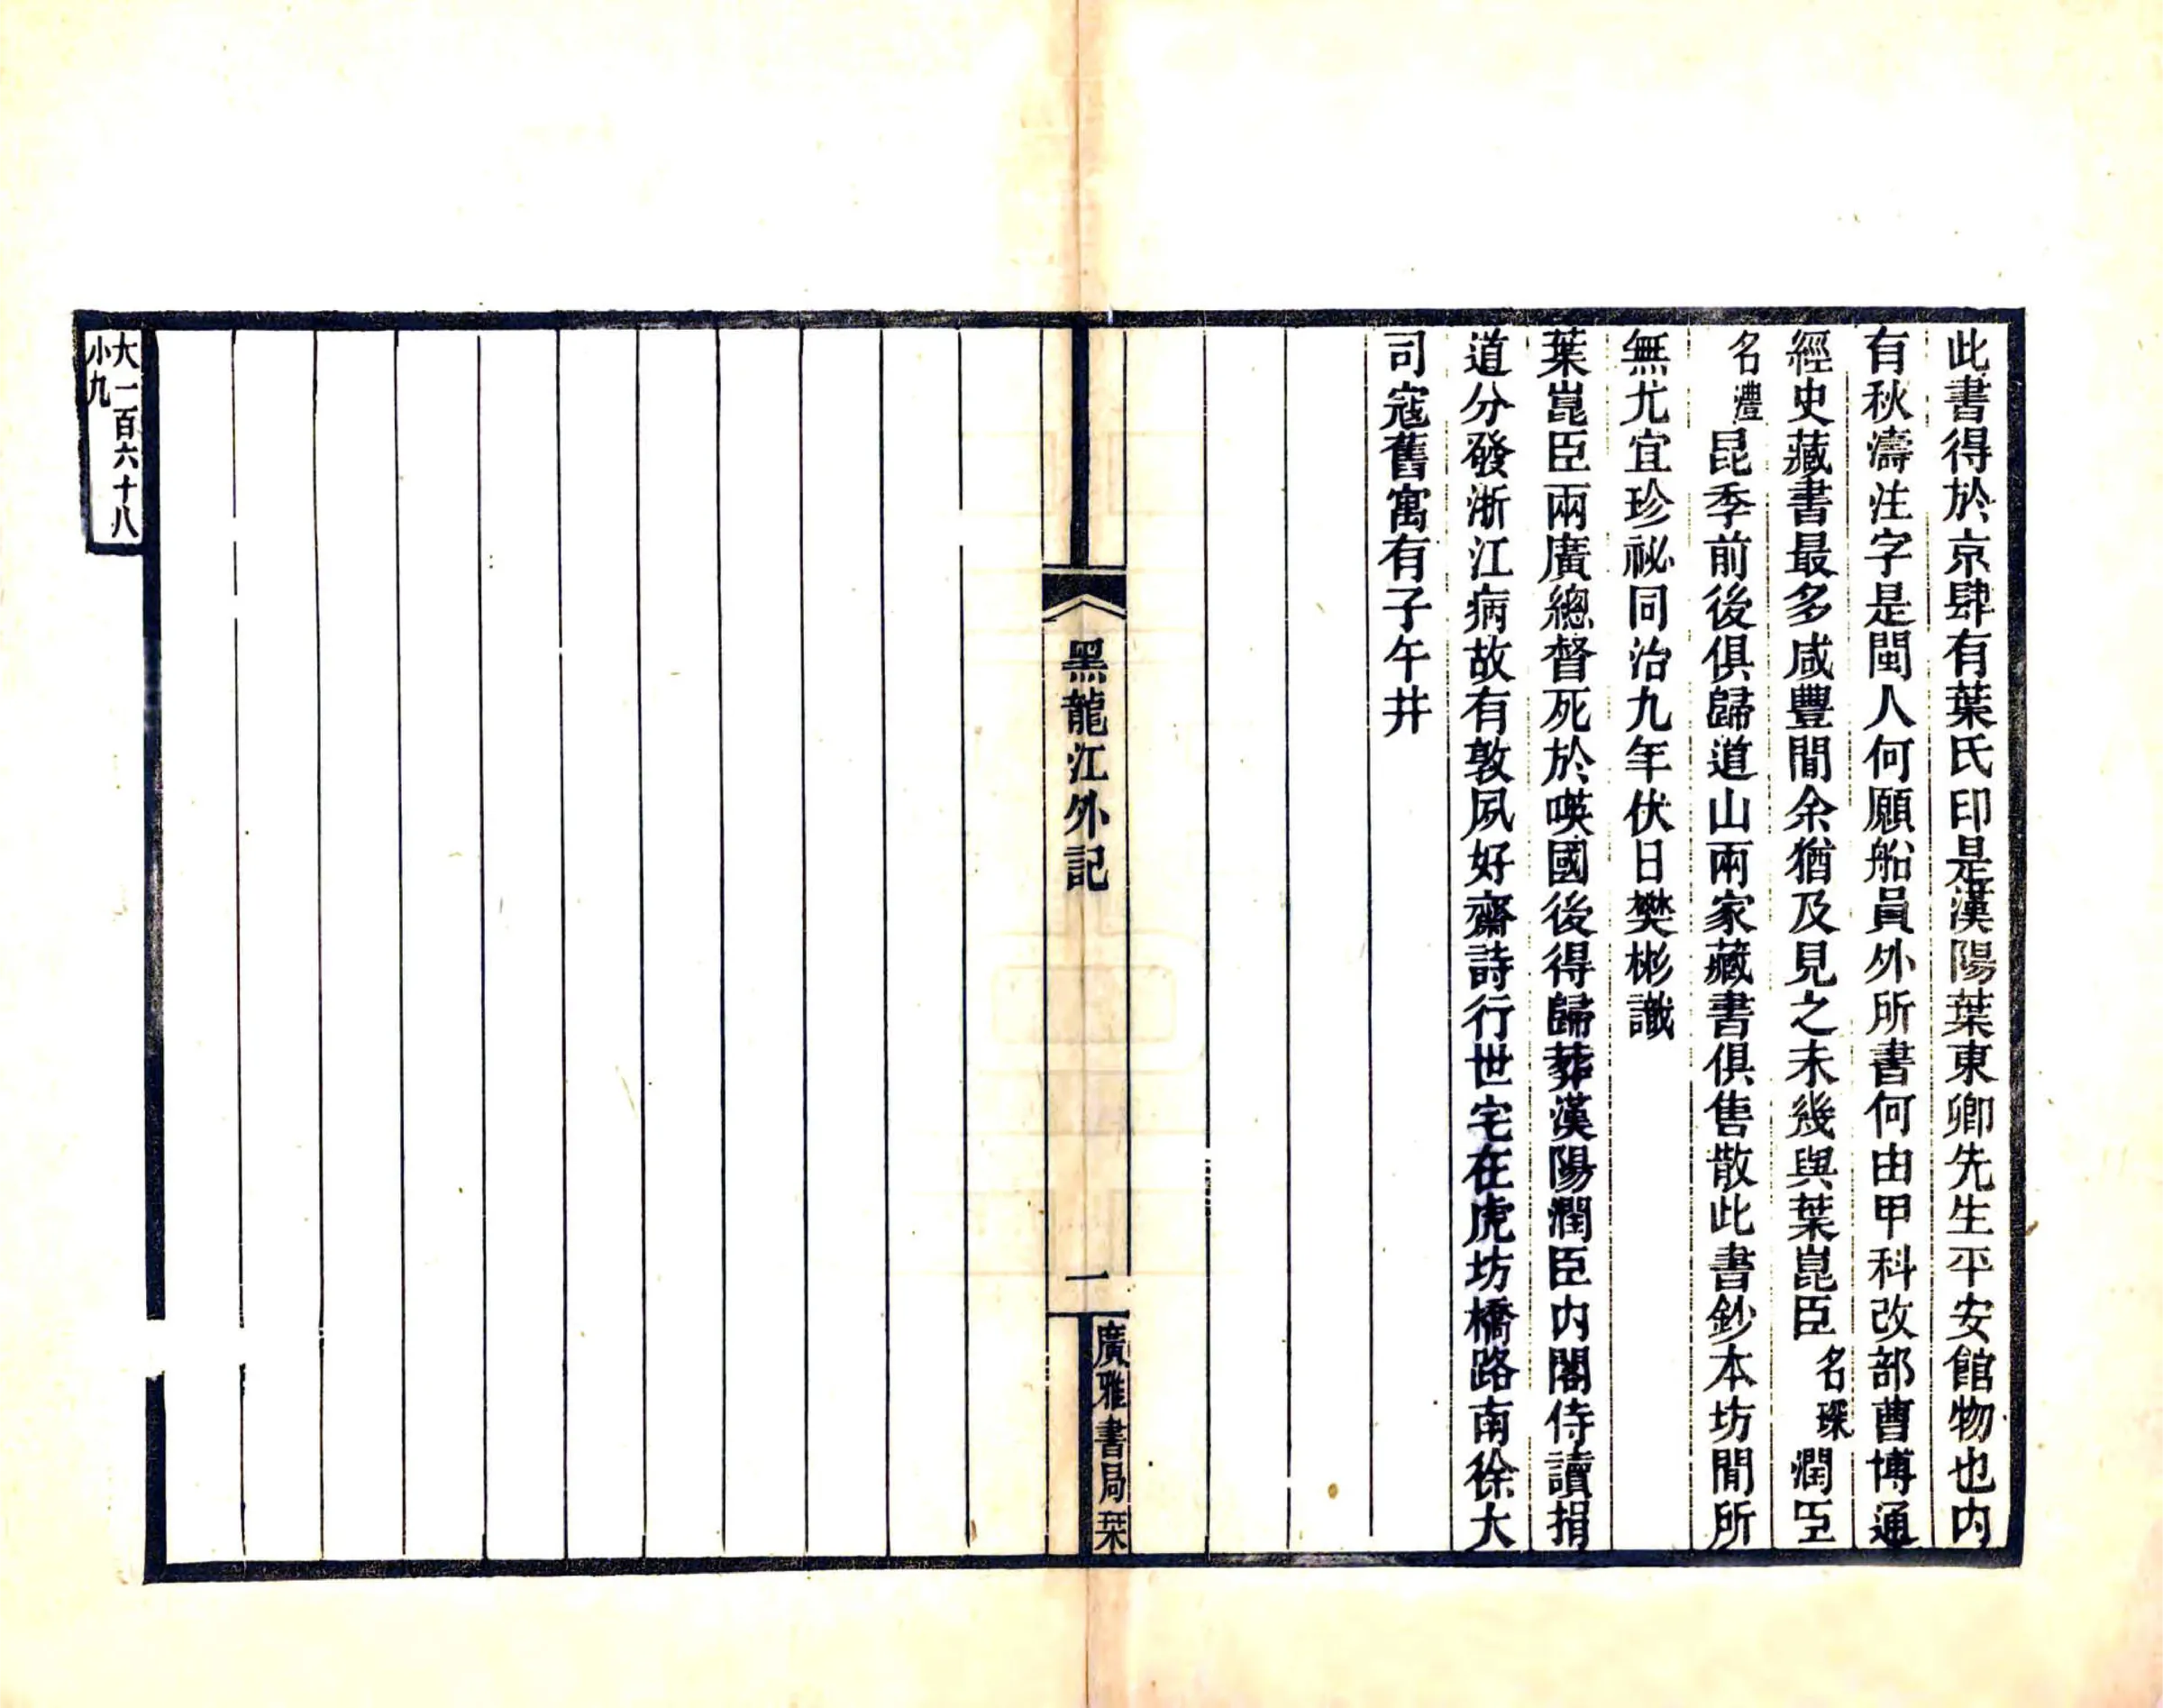 此書得於京肆有葉氏印是漢陽葉東卿先生平安館物也内
有秋濤注字是閩人何願船員外所書何由甲科改部曹博通
經史藏書最多咸豐間余猶及見之未幾與葉崑臣名琛潤臣
名灃昆季前後俱歸道山兩家藏書俱售散此書鈔本坊間所
無尤宜珍祕同治九年伏日樊彬識
葉崑臣兩廣總督死於暎國後得歸葬漢陽潤臣内閣侍讀捐
道分發浙江病故有敦夙好齋詩行世宅在虎坊橋路南徐大
司寇舊寓有子午井
黑龍江外記
一
廣雅書局栞
大一百六十八
小九